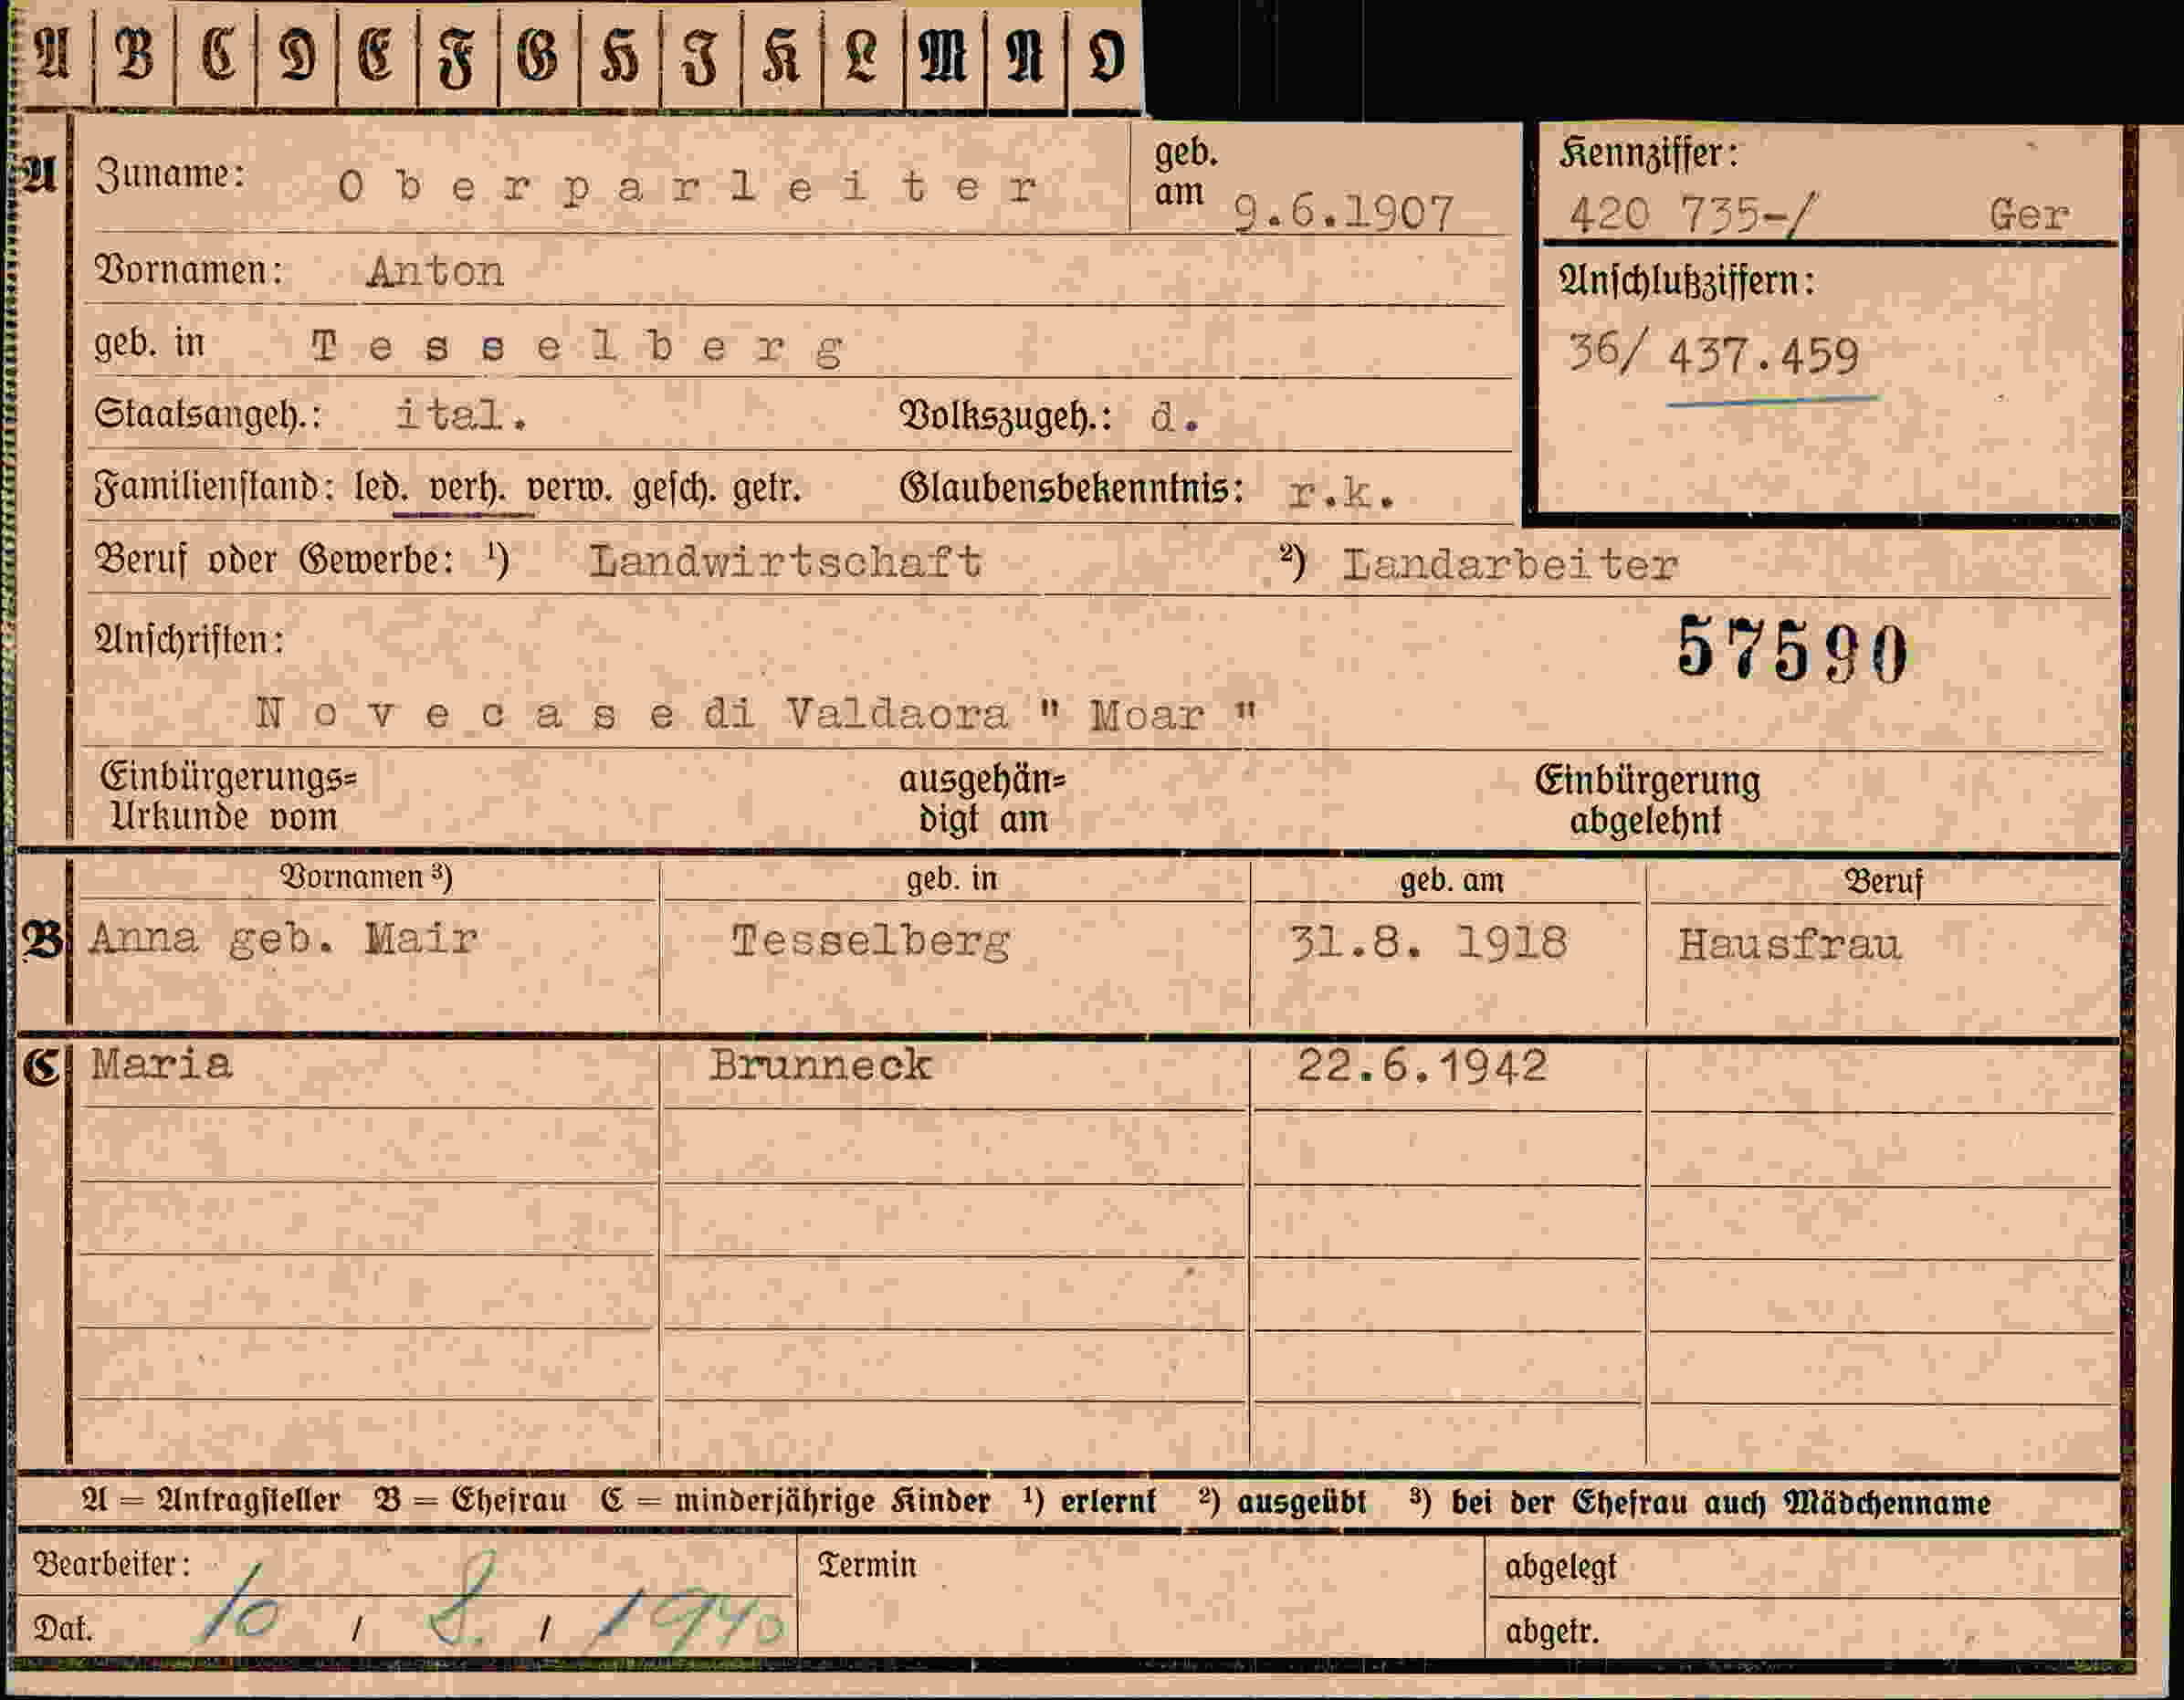 A B C D E F G H I K L M N O
A Zuname: Oberparleiter geb. am 9.6.1907
Kennziffer:
420 735-/ Ger
Vornamen: Anton
Anschlußziffern:
36/ 437.459
geb. in Tesselberg
Staatsangeh.: ital. Volkszugeh.: d.
Familienstand: led. verh. verw. gesch. getr. Glaubensbekenntnis: r.k.
Beruf oder Gewerbe: ¹) Landwirtschaft ²) Landarbeiter
Anschriften:
57590
Novecase di Valdaora " Moar "
Einbürgerungs= ausgehän= Einbürgerung
Urkunde vom digt am abgelehnt
Vornamen ³) geb. in geb. am Beruf
B Anna geb. Mair Tesselberg 31.8. 1918 Hausfrau
C Maria Brunneck 22.6.1942
A = Antragsteller B = Ehefrau C = minderjährige Kinder ¹) erlernt ²) ausgeübt ³) bei der Ehefrau auch Mädchenname
Bearbeiter: Termin abgelegt
Dat. 10 / 8. / 1940 abgetr.